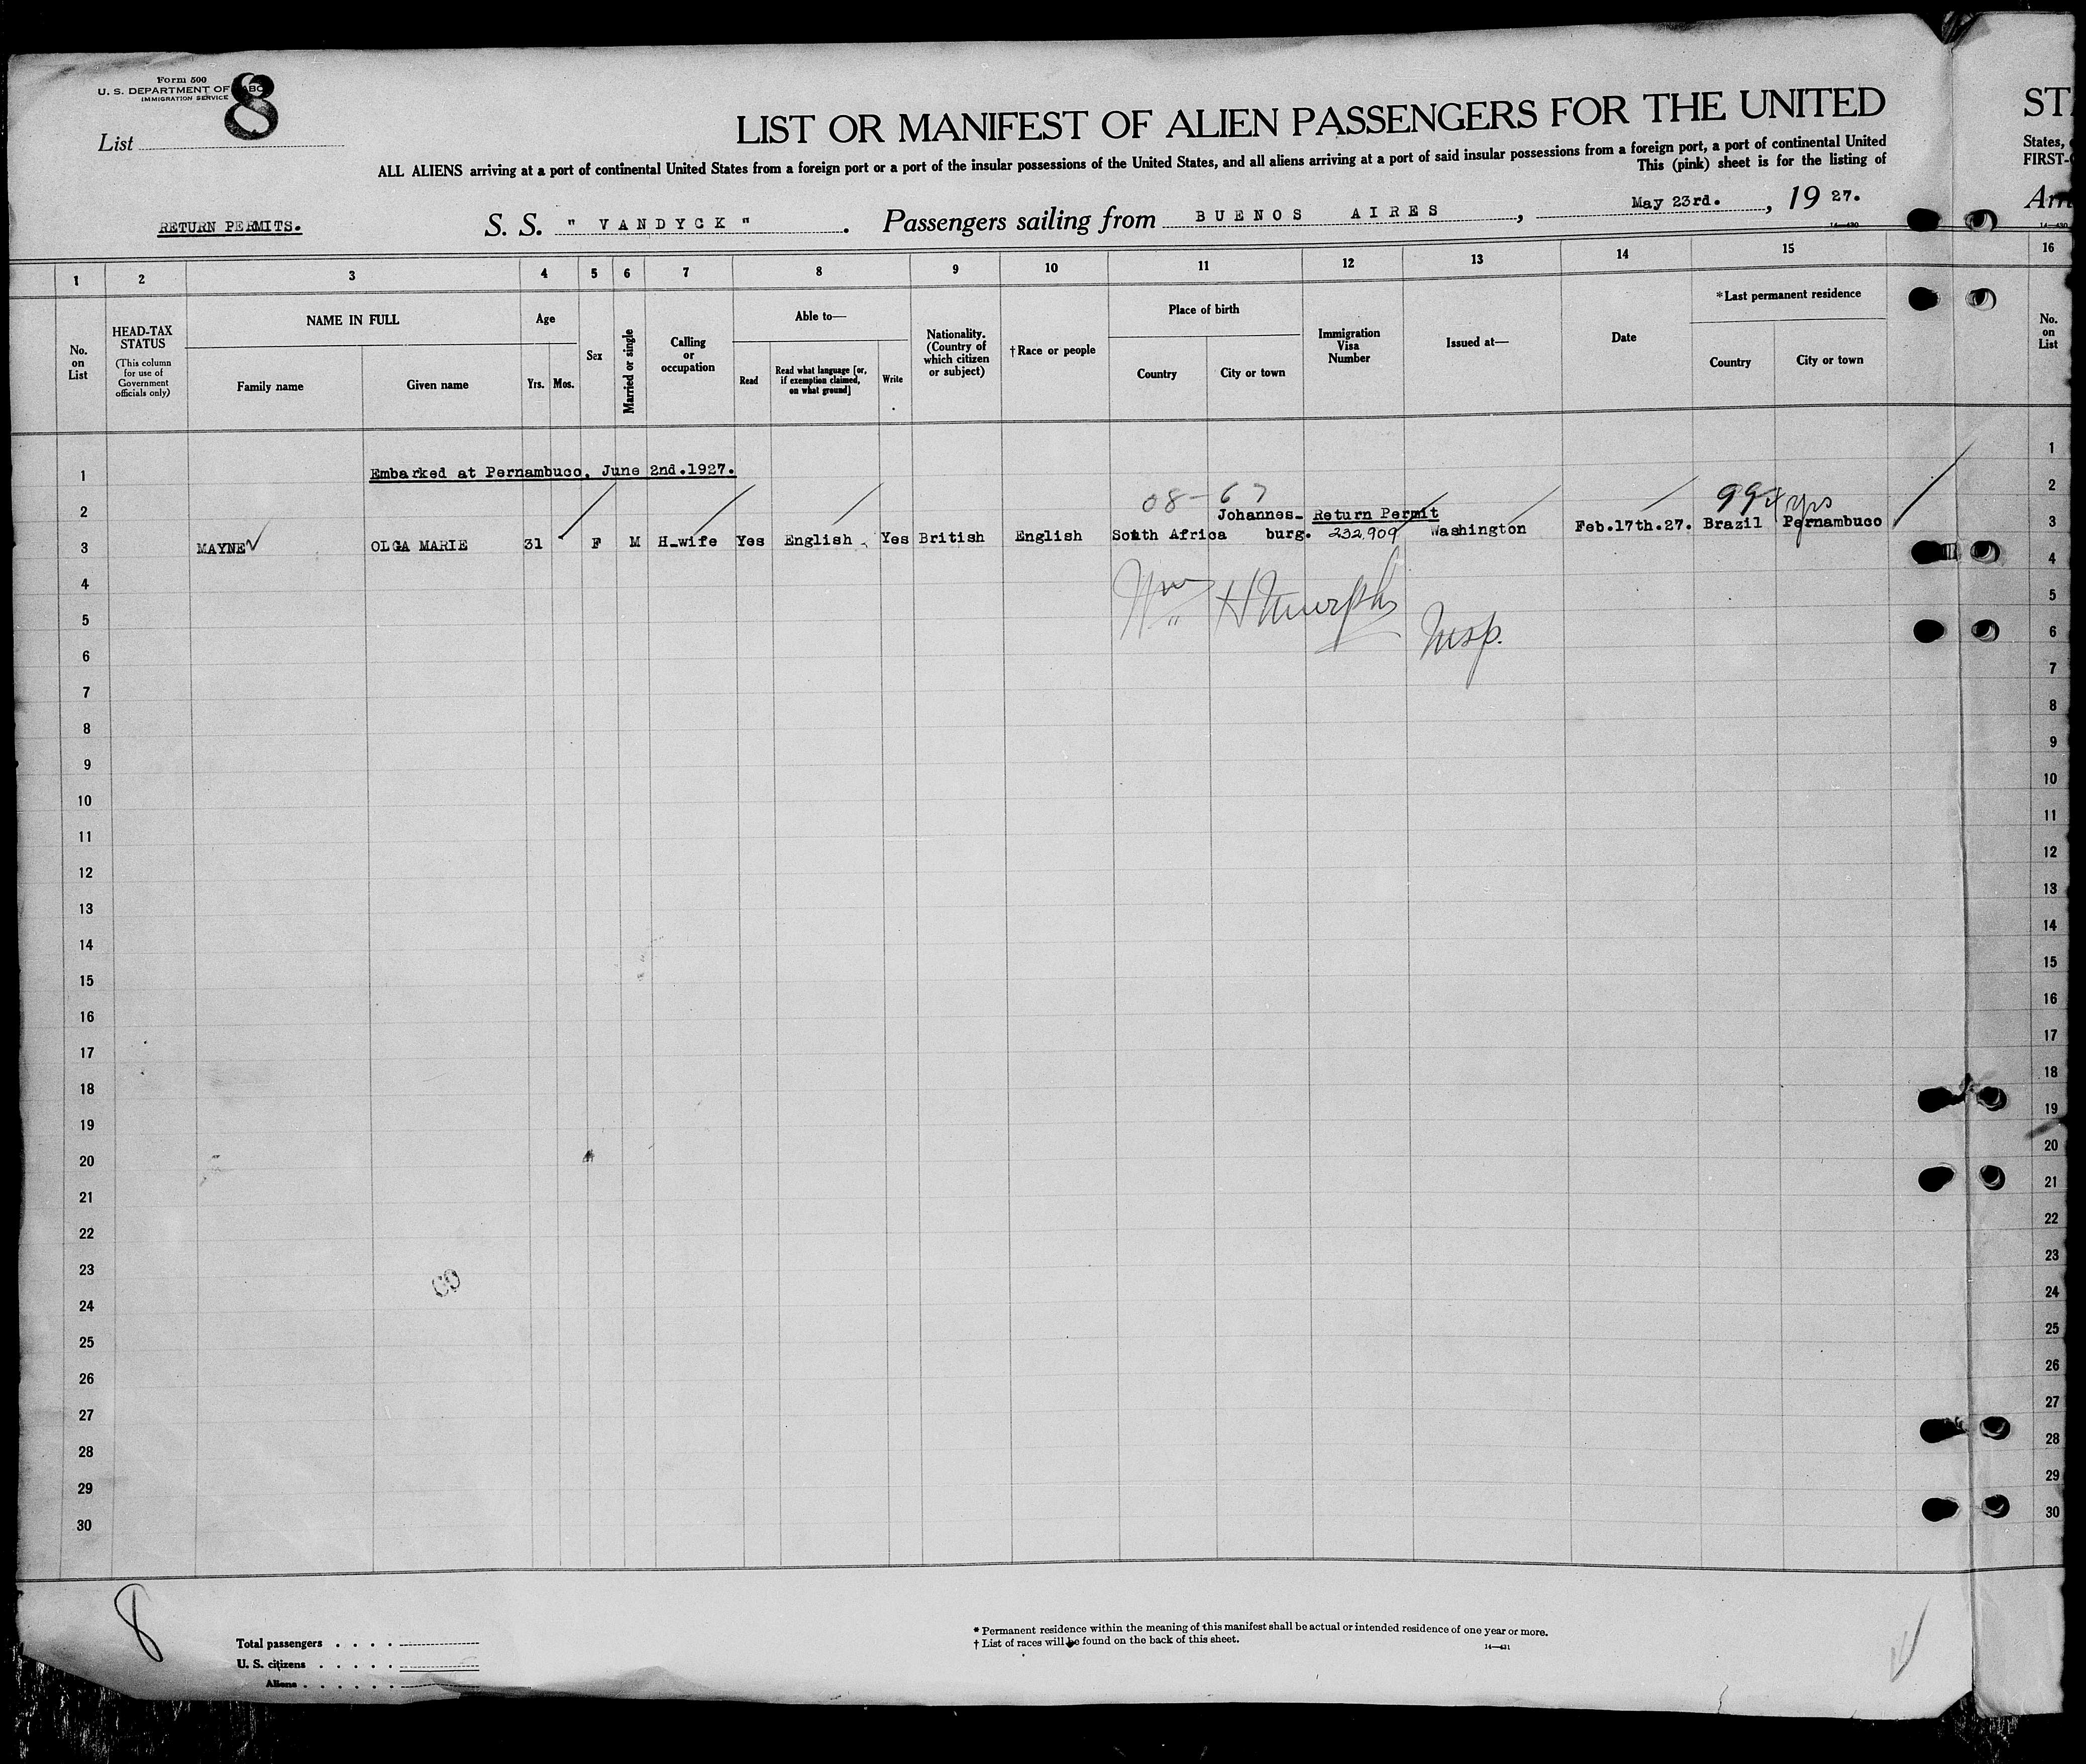 Form 500
U. S. DEPARTMENT OF LABOR
IMMIGRATION SERVICE
8
List
LIST OR MANIFEST OF ALIEN PASSENGERS FOR THE UNITED
ST
ALL ALIENS arriving at a port of continental United States from a foreign port or a port of the insular possessions of the United States, and all aliens arriving at a port of said insular possessions from a foreign port, a port of continental United
States,
This (pink) sheet is for the listing of
FIRST-
RETURN PERMITS.
S. S. " VANDYCK " . Passengers sailing from BUENOS AIRES , May 23rd. , 19 27.
Arri
14—430
1 2 3 4 5 6 7 8 9 10 11 12 13 14 15 16
No. on List
HEAD-TAX STATUS
(This column for use of Government officials only)
NAME IN FULL
Family name
Given name
Age
Yrs. Mos.
Sex
Married or single
Calling or occupation
Able to—
Read
Read what language [or, if exemption claimed, on what ground]
Write
Nationality. (Country of which citizen or subject)
†Race or people
Place of birth
Country
City or town
Immigration Visa Number
Issued at—
Date
*Last permanent residence
Country
City or town
No. on List
1
Embarked at Pernambuco, June 2nd.1927.
1
2
08-67
99
4 yrs
2
3 MAYNE OLGA MARIE 31 F M H-wife Yes English Yes British English South Africa Johannes-burg. Return Permit 232,909 Washington Feb.17th.27. Brazil Pernambuco
3
4 4
Wm H Murphy
5 5
Insp.
6 6
7 7
8 8
9 9
10 10
11 11
12 12
13 13
14 14
15 15
16 16
17 17
18 18
19 19
20 20
21 21
22 22
23 23
24 24
25 25
26 26
27 27
28 28
29 29
30 30
8
Total passengers . . . .
U. S. citizens . . . . .
Aliens . . . . . .
* Permanent residence within the meaning of this manifest shall be actual or intended residence of one year or more.
† List of races will be found on the back of this sheet.
14—431